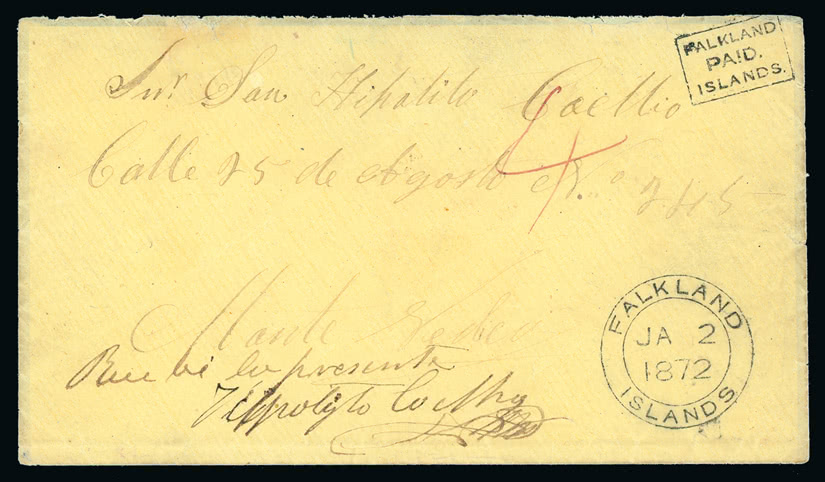 FALKLAND
PAID.
ISLANDS.
Snr. San Hipolito Coellio
Calle 25 de Agosto No 245
4
Monte Video
FALKLAND
JA 2
1872
ISLANDS
Recibi la presente
Hippolyto Coelho